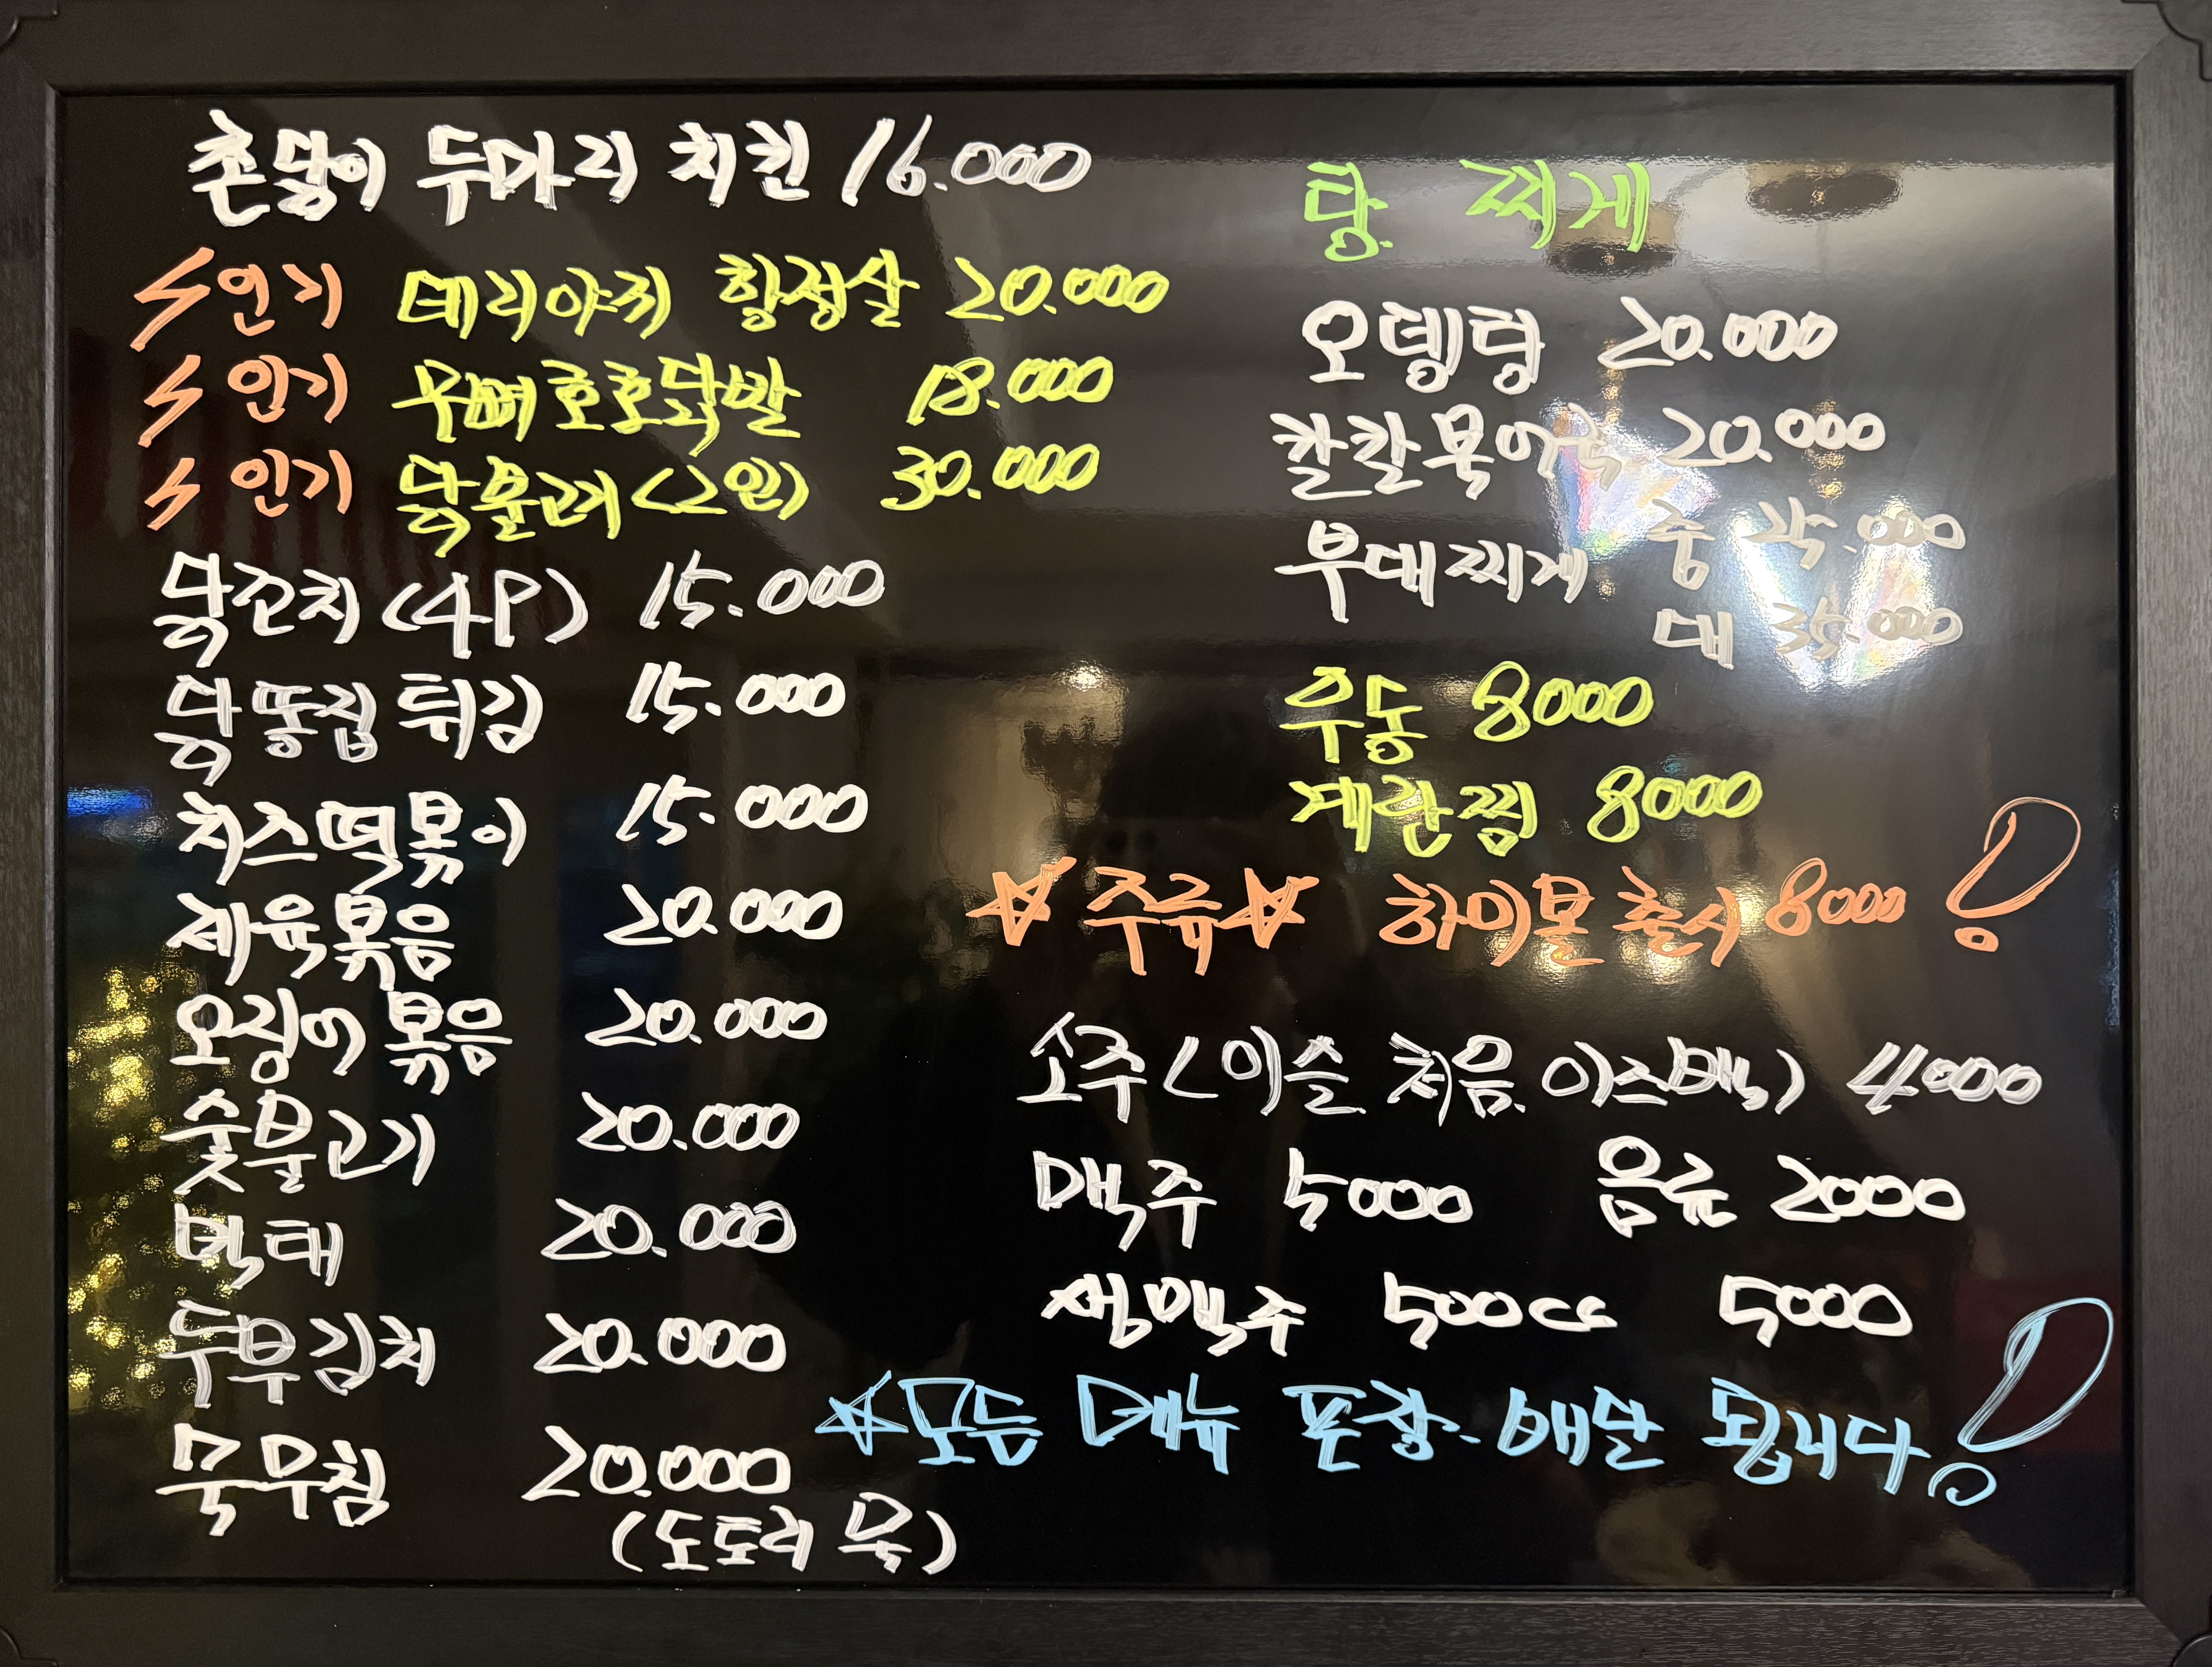 촌닭이 두마리 치킨 16.000
인기 데리야끼 항정살 20.000
인기 무뼈호호닭발 18.000
인기 닭줄고기(2인) 30.000
닭꼬치 (4P) 15.000
닭똥집 튀김 15.000
치즈떡볶이 15.000
제육볶음 20.000
오징어볶음 20.000
숯불고기 20.000
먹태 20.000
두부김치 20.000
묵무침 20.000
(도토리 묵)
탕. 찌게
오뎅탕 20.000
칼칼묵어 20.000
부대찌게 중 .000
대 35.000
우동 8000
계란찜 8000
☆주류☆ 하이볼 출시 8000 !
소주<이슬. 처음. 이즈백> 4000
맥주 5000 음료 2000
생맥주 500cc 5000
☆모든 메뉴 포장.배달 됩니다!